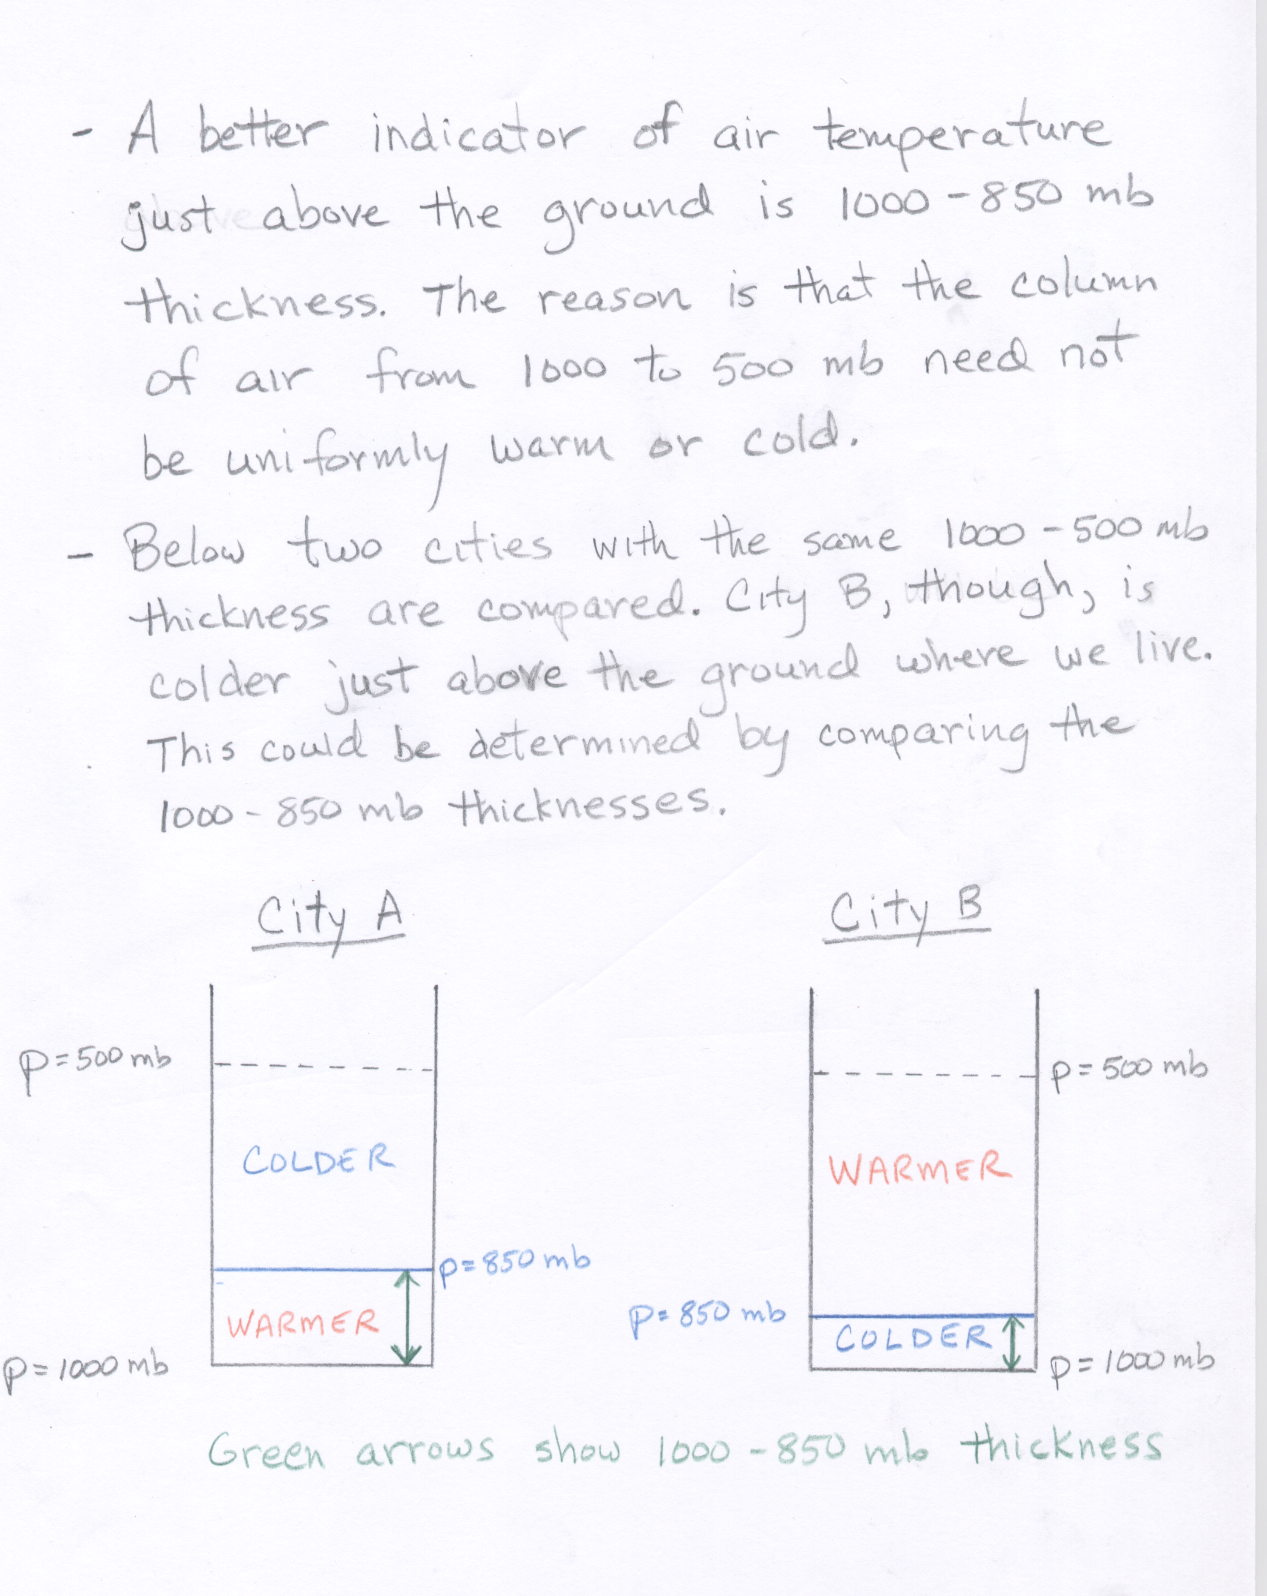 - A better indicator of air temperature
just above the ground is 1000-850 mb
thickness. The reason is that the column
of air from 1000 to 500 mb need not
be uniformly warm or cold.
- Below two cities with the same 1000-500 mb
thickness are compared. City B, though, is
colder just above the ground where we live.
This could be determined by comparing the
1000-850 mb thicknesses.
City A
City B
p=500 mb
p=500 mb
COLDER
WARMER
p=850 mb
p=850 mb
WARMER
COLDER
p=1000 mb
p=1000 mb
Green arrows show 1000-850 mb thickness